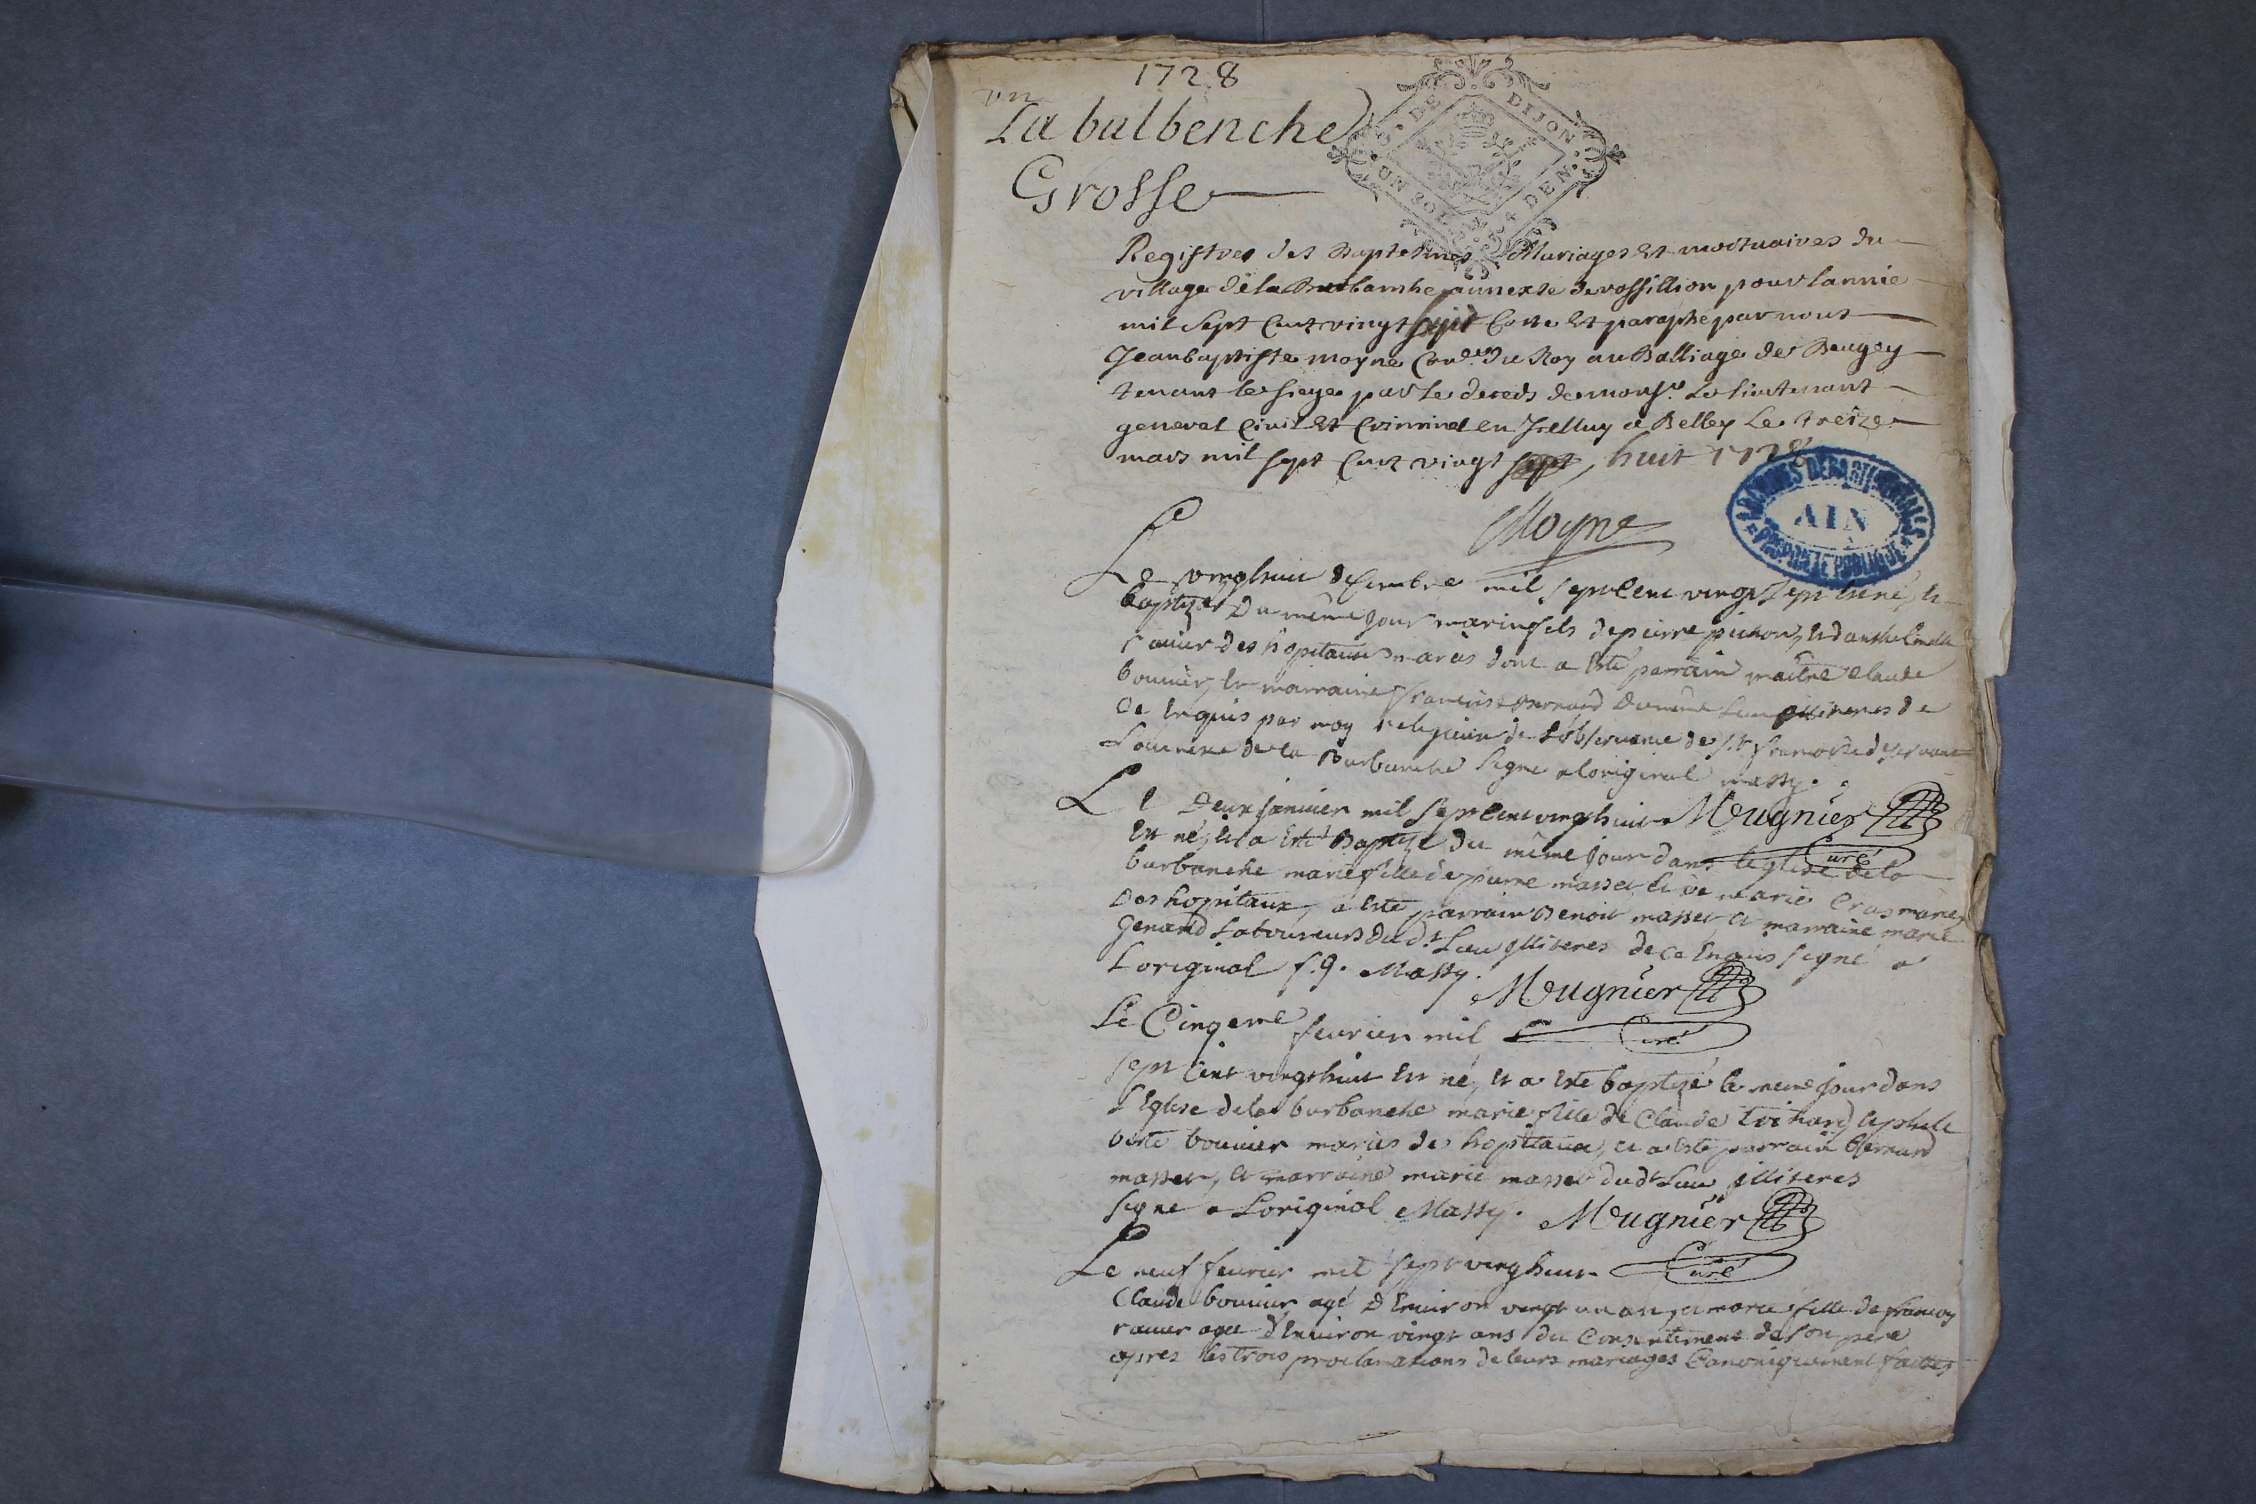 1728
un
La bulbenche
Grosse
G. DE DIJON
UN SOL 4 DEN.
Registres des Baptesmes Mariages Et mortuaires du
village de la Burbanche annexe de rossillion pour lannée
mil Sept Cent vingt sept Cotte Et paraphé par nous
Jean baptiste moyne Con.er du Roy au Balliage de Beugey
tenant le siege par le deceds de mons.r Le Lieutenant
general Civil Et Criminel en Icelluy a Belley Le treize
mars mil sept Cent vingt sept, huit 1728
Moyne
ARCHIVES DÉPARTEMENTALES
AIN
PROPRIÉTÉ PUBLIQUE
Le vingthuit decembre mil septcent vingt sept est né, et
baptizé du même jour marin fils de pierre pichon, et d'anthelmette
ravier des hopitaux mariés dont a esté parrain maitre claude
bouvier, et marraine françoise bernard du même lieu illiteres de
ce Enquis par moy religieux de L'observance de s.t françois deservant
L'annexe de la Burbanche signe a loriginal massy.
Mugnier
Curé
Le Deux janvier mil sept cent vingthuit
Est né, et a esté Baptizé du même jour dans l'eglise de la
burbanche marie fille de pierre masset et de marie Cros mariés
Des hopitaux, a esté parrain Benoit masset, et marraine marie
Genard Laboureurs dud.t Lieu illiteres de ce Enquis signé a
L'original f. g. Massy.
Mugnier
Curé
Le Cinqeme fevrier mil
sept Cent vingthuit Est né, et a esté baptizé le meme jour dans
L'Eglise de la burbanche marie fille de Claude trichard, et phili
berte bouvier mariés des hopitaux, et a esté parrain bernard
masset, et marraine marie masset dud.t Lieu illiteres
signe a L'original Massy.
Mugnier
Curé
Le neuf fevrier mil sept vingthuit
Claude bouvier agé d'Environ vingt un ans, et marie fille de françois
ravier agee d'Environ vingt ans du Consentement de son pere
apres les trois proclamations de leurs mariages Canoniquement faittes